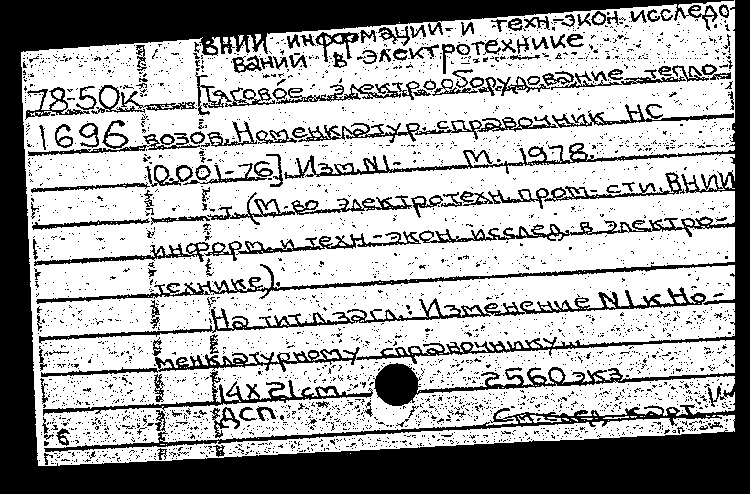 ВНИИ информации и техн.-экон. исследо-
ваний в электротехнике.
78-50к Тяговое электрооборудование тепло-
1696 возов. Номенклатур. справочник НС
10.001-76]. Изм. N1- М., 1978.
-т. (М-во электротехн. пром-сти. ВНИИ
информ. и техн.-экон. исслед. в электро-
технике).
На тит. л. загл.: Изменение N1 к Но-
менклатурному справочнику...
14X21cm. 2560 экз.
ДСП. См. след. карт.
6